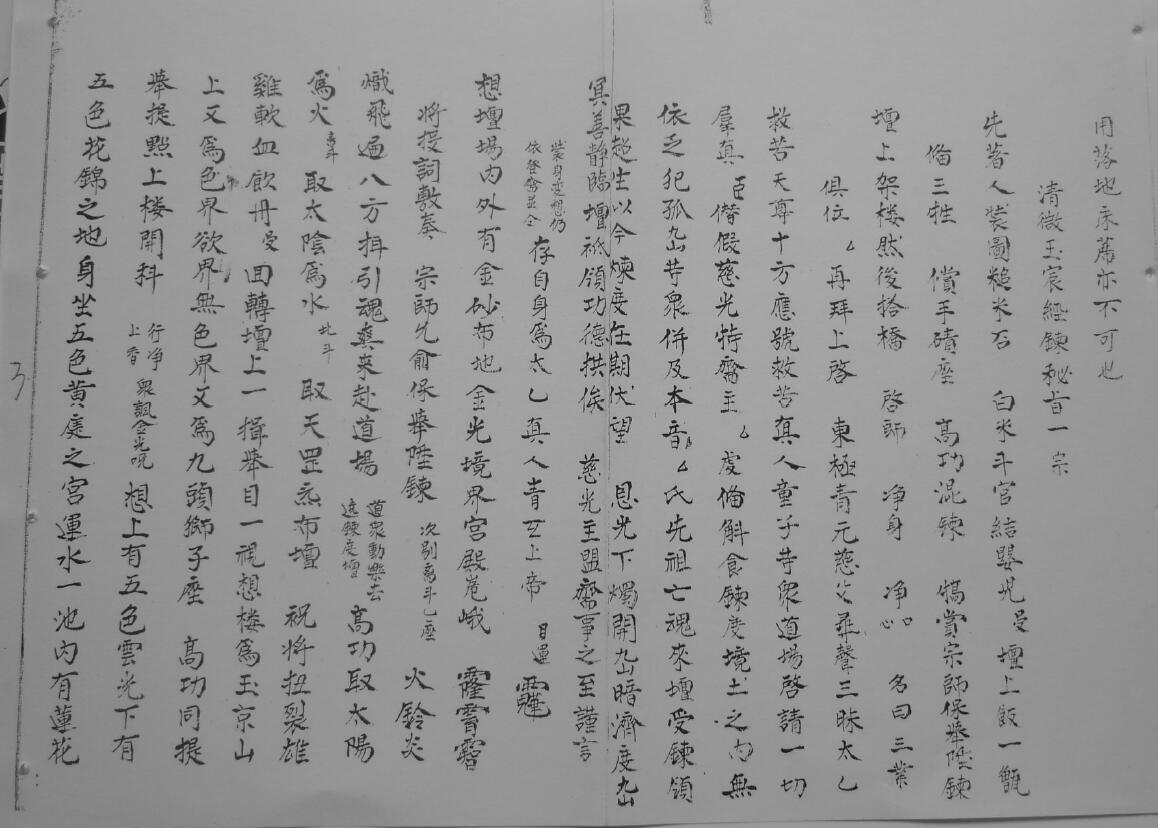 用落地床薦亦不可也
清微玉宸經鍊秘旨一宗
先著人裝圖糙米石 白米斗宮結嬰児受壇上飯一甑
俻三牲 償手磧座 高功混鍊 犒賞宗師保舉陞鍊
壇上架楼然後搭橋 啓師 净身 净心口 名曰三業
俱位厶再拜上啓 東極青元慈父尋聲三昧太乙
救苦天尊十方應號救苦真人童子寺眾道場啓請一切
羣真臣僭假慈光特齋主厶虔俻斛食鍊度境土之内無
依乏犯孤幽寺衆併及本音厶氏先祖亡魂來壇受鍊領
果超生以今煉度在期伏望 恩光下燭開幽暗濟度幽
冥善静臨壇祗領功德拱俟 慈光主盟齋事之至謹言
裝身变想仍
依登齋並仝
存自身爲太乙真人青玄上帝
目運
想壇場内外有金砂布地金光境界宮殿嵬峨
将授詞敷奏 宗師允俞保舉陞鍊
次剔离斗乙座
火鈴炎
熾飛遍八方揖引魂真来赴道場
道眾動樂去
遶鍊度壇
髙功取太陽
爲火
离斗
取太陰爲水
北斗
取天罡炁布壇 祝将扭裂雄
雞軟血飲冊受 囬轉壇上一揖舉目一視想楼爲玉京山
上又爲色界欲界無色界又爲九頭獅子座 高功同提
舉提點上楼開科
行净
上香
眾諷金光咒
想上有五色雲光下有
五色花錦之地身坐五色黄庭之宮運水一池内有蓮花
3